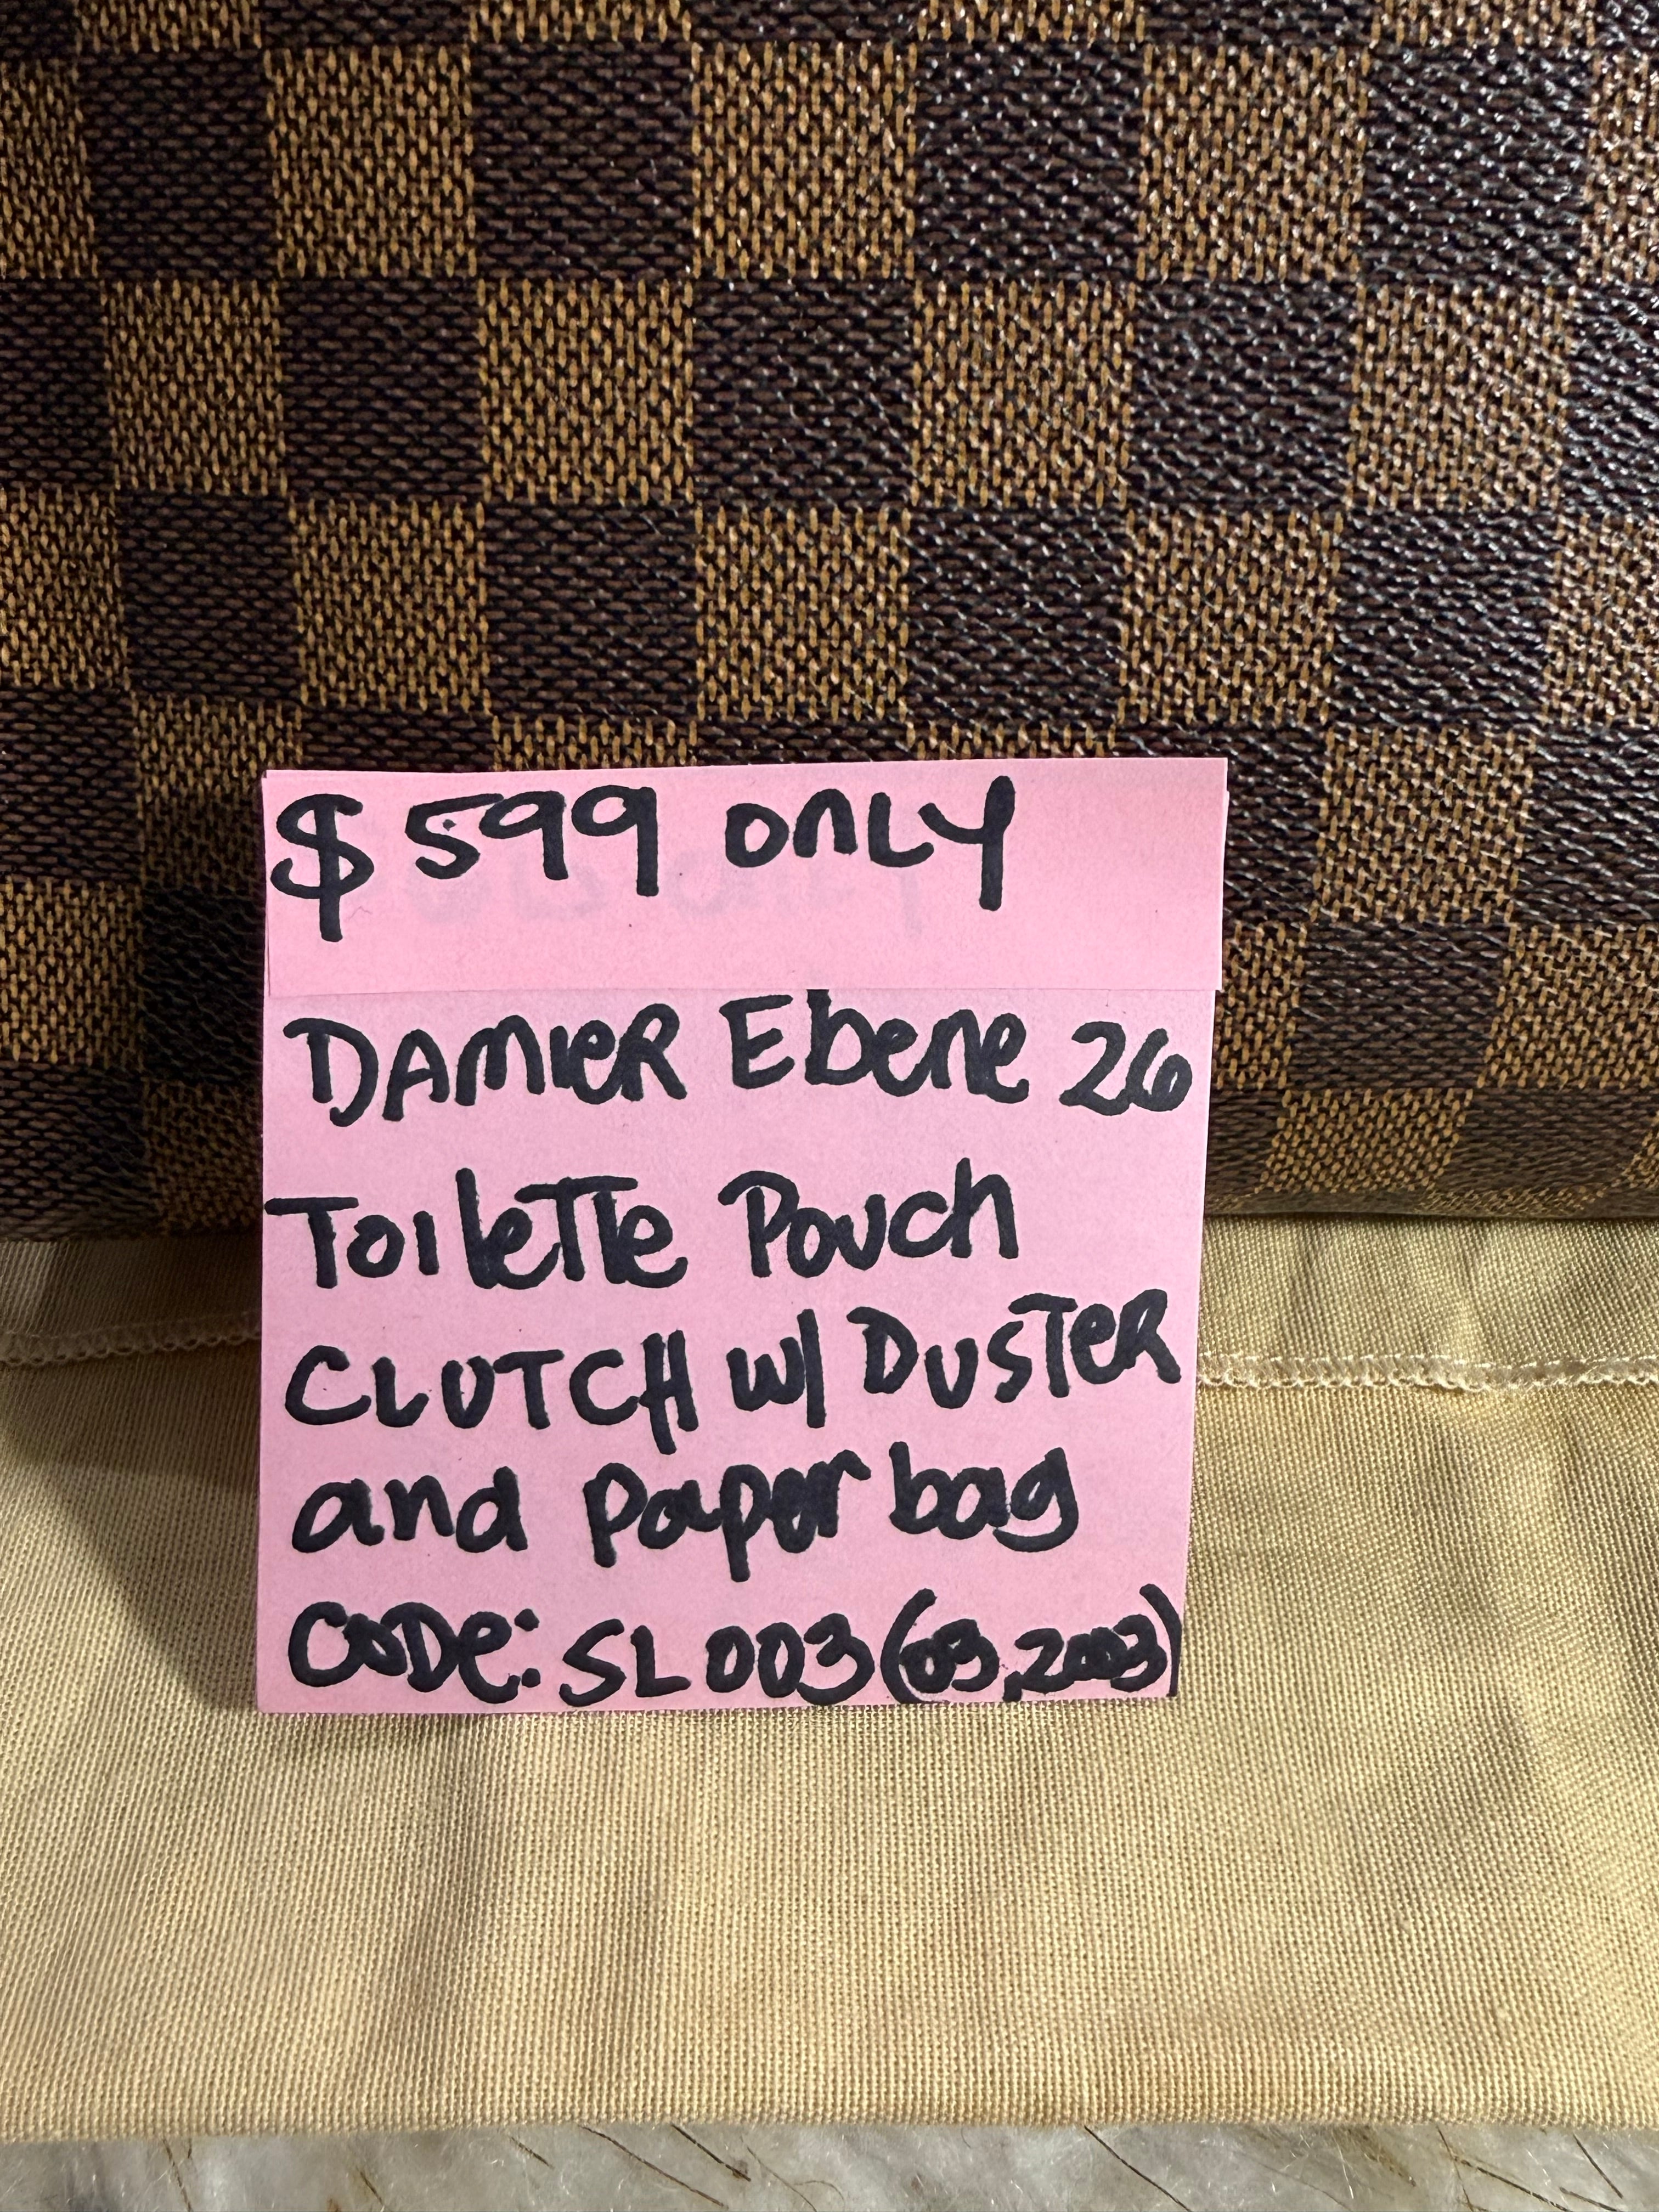 $599 ONLY
DAMIER Ebene 26
Toilette Pouch
CLUTCH w/ DUSTER
and paper bag
CODE: SL003 (03,2003)